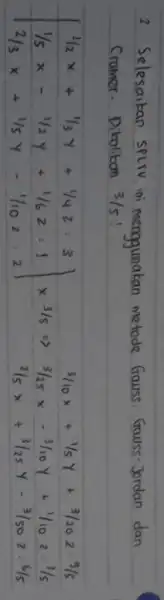 2 Selesaikan SPLTV ini menggunakan metode Gauss, Gauss-Jordan dan
Cramer. Dikalikan 3/5!
1/2 x + 1/3 y + 1/4 z = 3 | 3/10 x + 1/5 y + 3/20 z = 9/5
1/5 x - 1/2 y + 1/6 z = 1 | x 3/5 => 3/25 x - 3/10 y + 1/10 z = 3/5
2/3 x + 1/5 y - 1/10 z = 2 | 2/5 x + 3/25 y - 3/50 z = 6/5